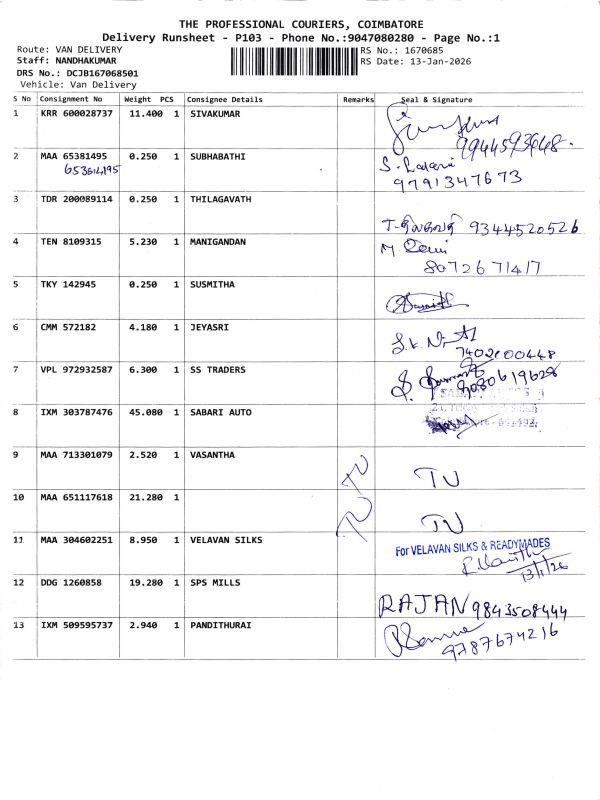 THE PROFESSIONAL COURIERS, COIMBATORE
Delivery Runsheet - P103 - Phone No.:9047080280 - Page No.:1
Route: VAN DELIVERY
RS No.: 1670685
Staff: NANDHAKUMAR
RS Date: 13-Jan-2026
DRS No.: DCJB167068501
Vehicle: Van Delivery
S No Consignment No Weight PCS Consignee Details Remarks Seal & Signature
1 KRR 600028737 11.400 1 SIVAKUMAR
2 MAA 65381495 0.250 1 SUBHABATHI
9791347673
3 TDR 200089114 0.250 1 THILAGAVATH
9344520526
4 TEN 8109315 5.230 1 MANIGANDAN
8072671417
5 TKY 142945 0.250 1 SUSMITHA
6 CMM 572182 4.180 1 JEYASRI
7402600448
7 VPL 972932587 6.300 1 SS TRADERS
8 IXM 303787476 45.080 1 SABARI AUTO
9 MAA 713301079 2.520 1 VASANTHA
10 MAA 651117618 21.280 1
11 MAA 304602251 8.950 1 VELAVAN SILKS
For VELAVAN SILKS & READYMADES
13/1/26
12 DDG 1260858 19.280 1 SPS MILLS
RAJAN 9843508444
13 IXM 509595737 2.940 1 PANDITHURAI
9787674216